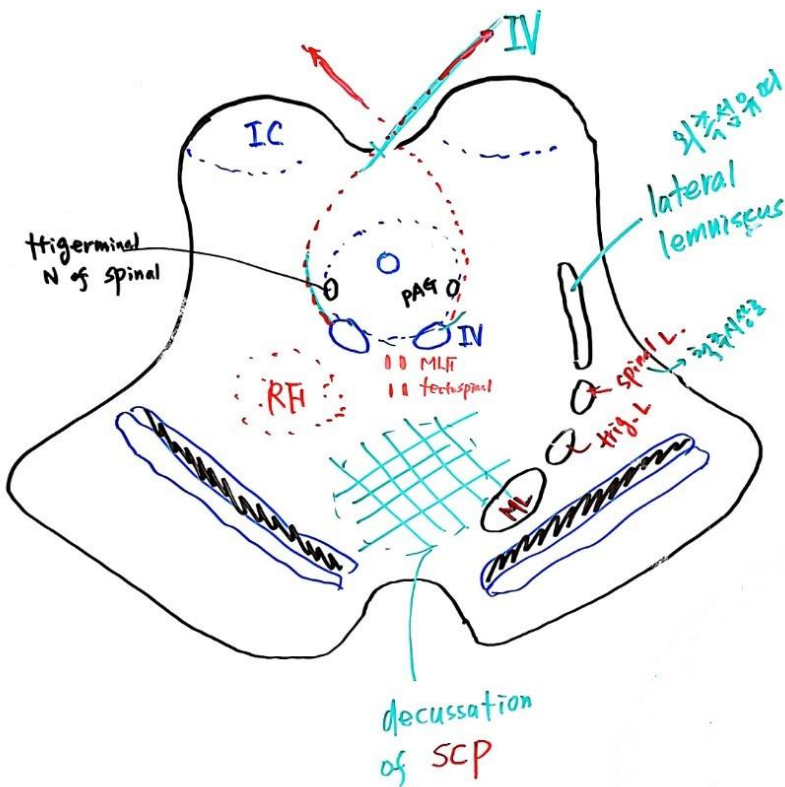 IV
IC
외측섬유띠
lateral
lemniscus
trigerminal
N of spinal
PAG
IV
MLF
tectospinal
RF
spinal L.
척수시상로
trig. L
ML
decussation
of SCP